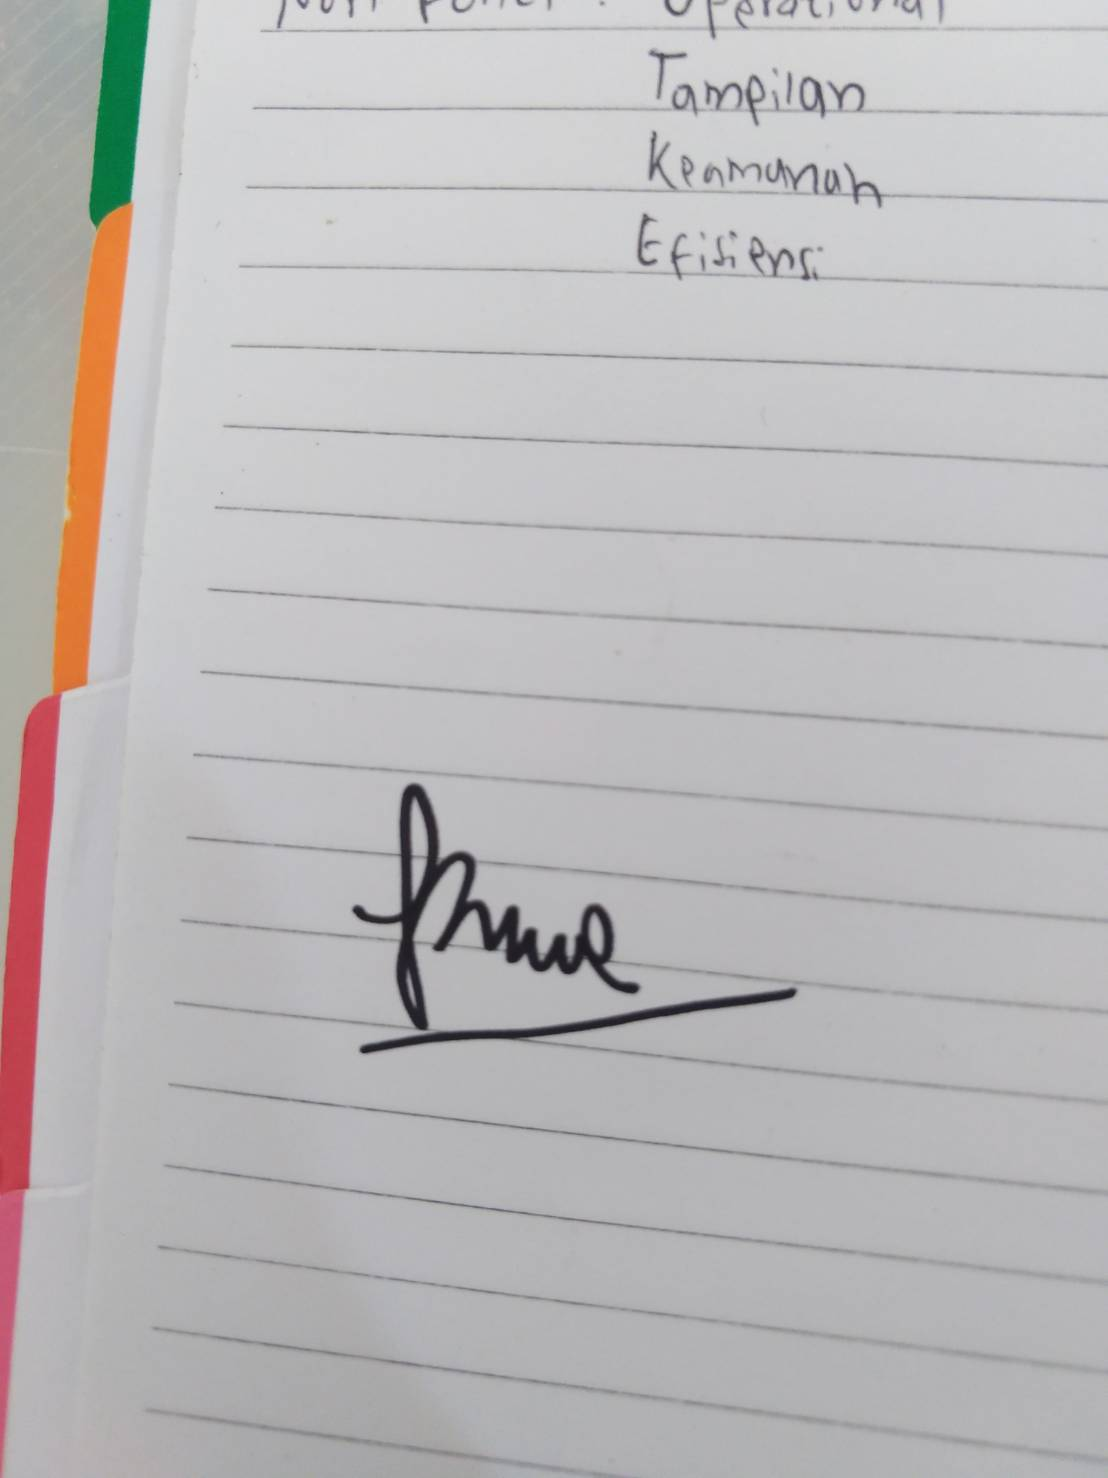 Operational
Tampilan
Keamanan
Efisiensi